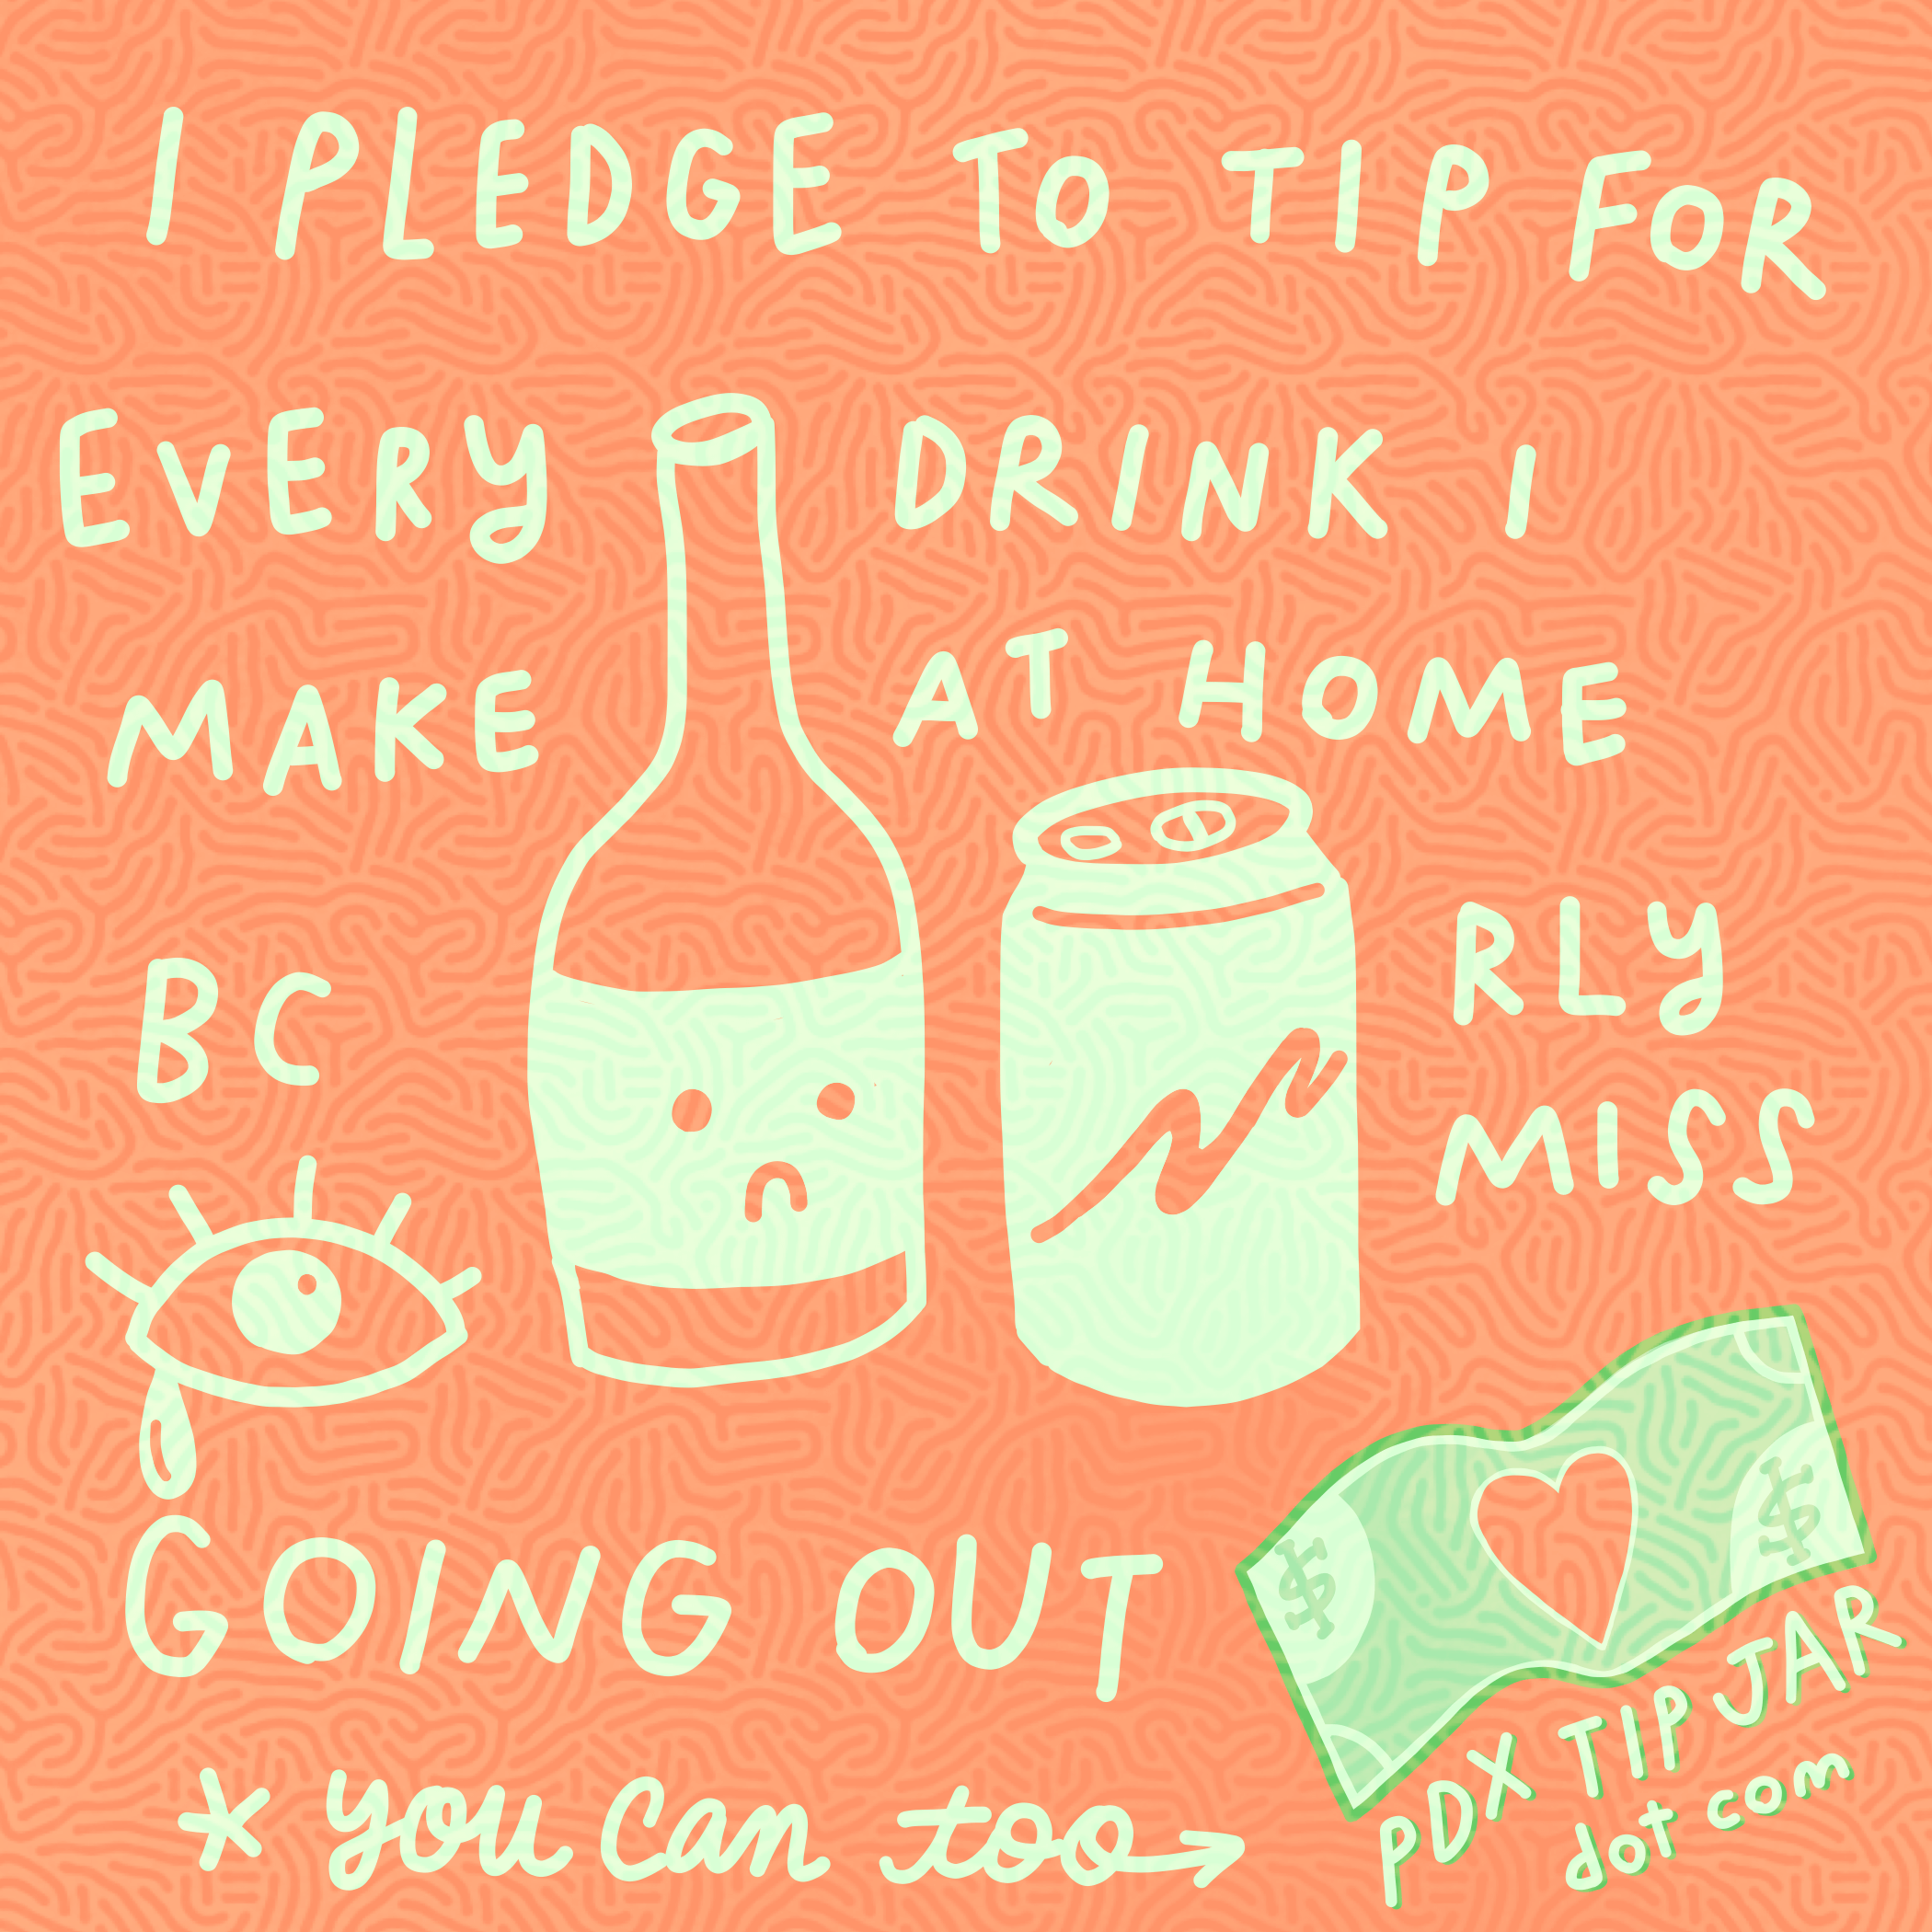 I PLEDGE TO TIP FOR
EVERY DRINK I
MAKE AT HOME
BC RLY
MISS
GOING OUT
* you can too →
$ $
PDX TIP JAR
dot com